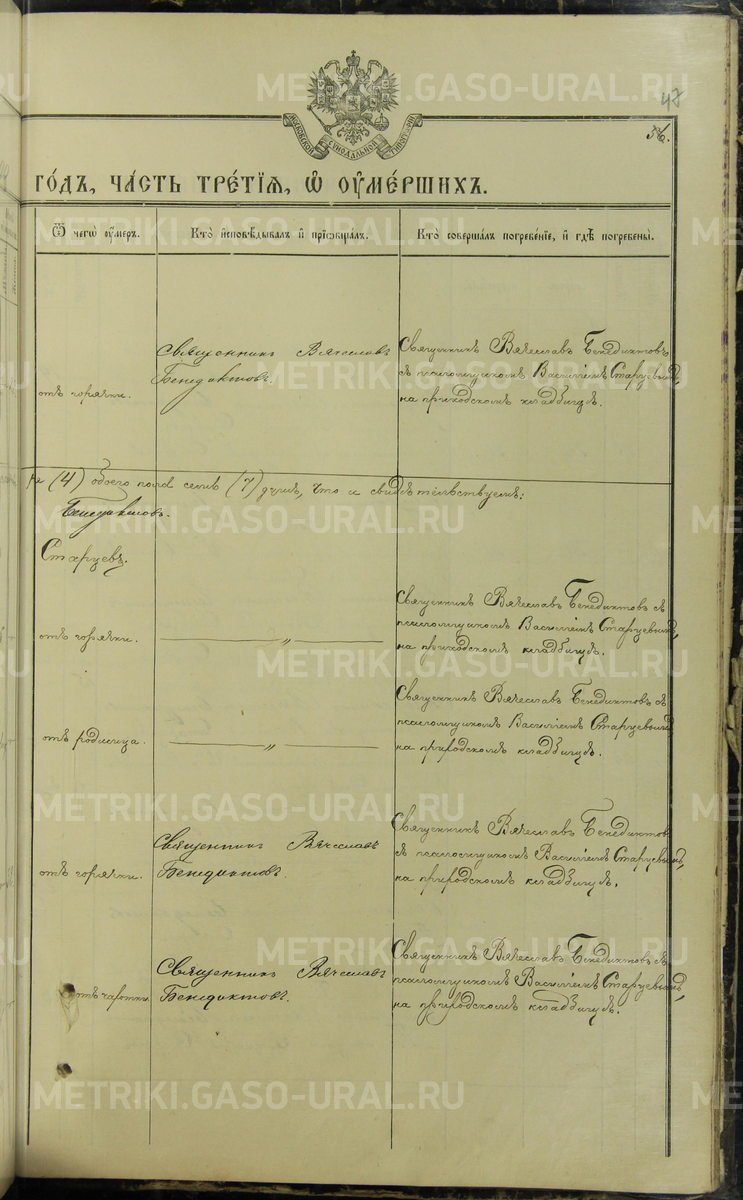 METRIKI.GASO-URAL.RU
47
МОСКОВСКОЙ СѴНОДАЛЬНОЙ ТИПОГРАФІИ
54.
ГО́ДЪ, ЧА́СТЬ ТРЕ́ТІѦ, Ѡ҆ ОУ҆МЕ́РШИХЪ.
Ѿ чегѡ̀ оу҆́меръ.
Кто̀ и҆сповѣ́дывалъ и҆ прїѡбща́лъ.
Кто̀ соверша́лъ погребе́нїе, и҆ гдѣ̀ погребены̀.
отъ горячки.
Священникъ Вячеславъ
Бенедиктовъ.
Священникъ Вячеславъ Бенедиктовъ
съ псаломщикомъ Василіемъ Старцевымъ,
на приходскомъ кладбищѣ.
(4) обоего пола семь (7) душъ, что и свидѣтельствуемъ:
Бенедиктовъ.
Старцевъ.
отъ горячки.
— „ —
Священникъ Вячеславъ Бенедиктовъ съ
псаломщикомъ Василіемъ Старцевымъ,
на приходскомъ кладбищѣ.
отъ родимца.
— „ —
Священникъ Вячеславъ Бенедиктовъ съ
псаломщикомъ Василіемъ Старцевымъ
на приходскомъ кладбищѣ.
отъ горячки.
Священникъ Вячеславъ
Бенедиктовъ.
Священникъ Вячеславъ Бенедиктовъ
съ псаломщикомъ Василіемъ Старцевымъ,
на приходскомъ кладбищѣ.
отъ чахотки.
Священникъ Вячеславъ
Бенедиктовъ.
Священникъ Вячеславъ Бенедиктовъ съ
псаломщикомъ Василіемъ Старцевымъ,
на приходскомъ кладбищѣ.